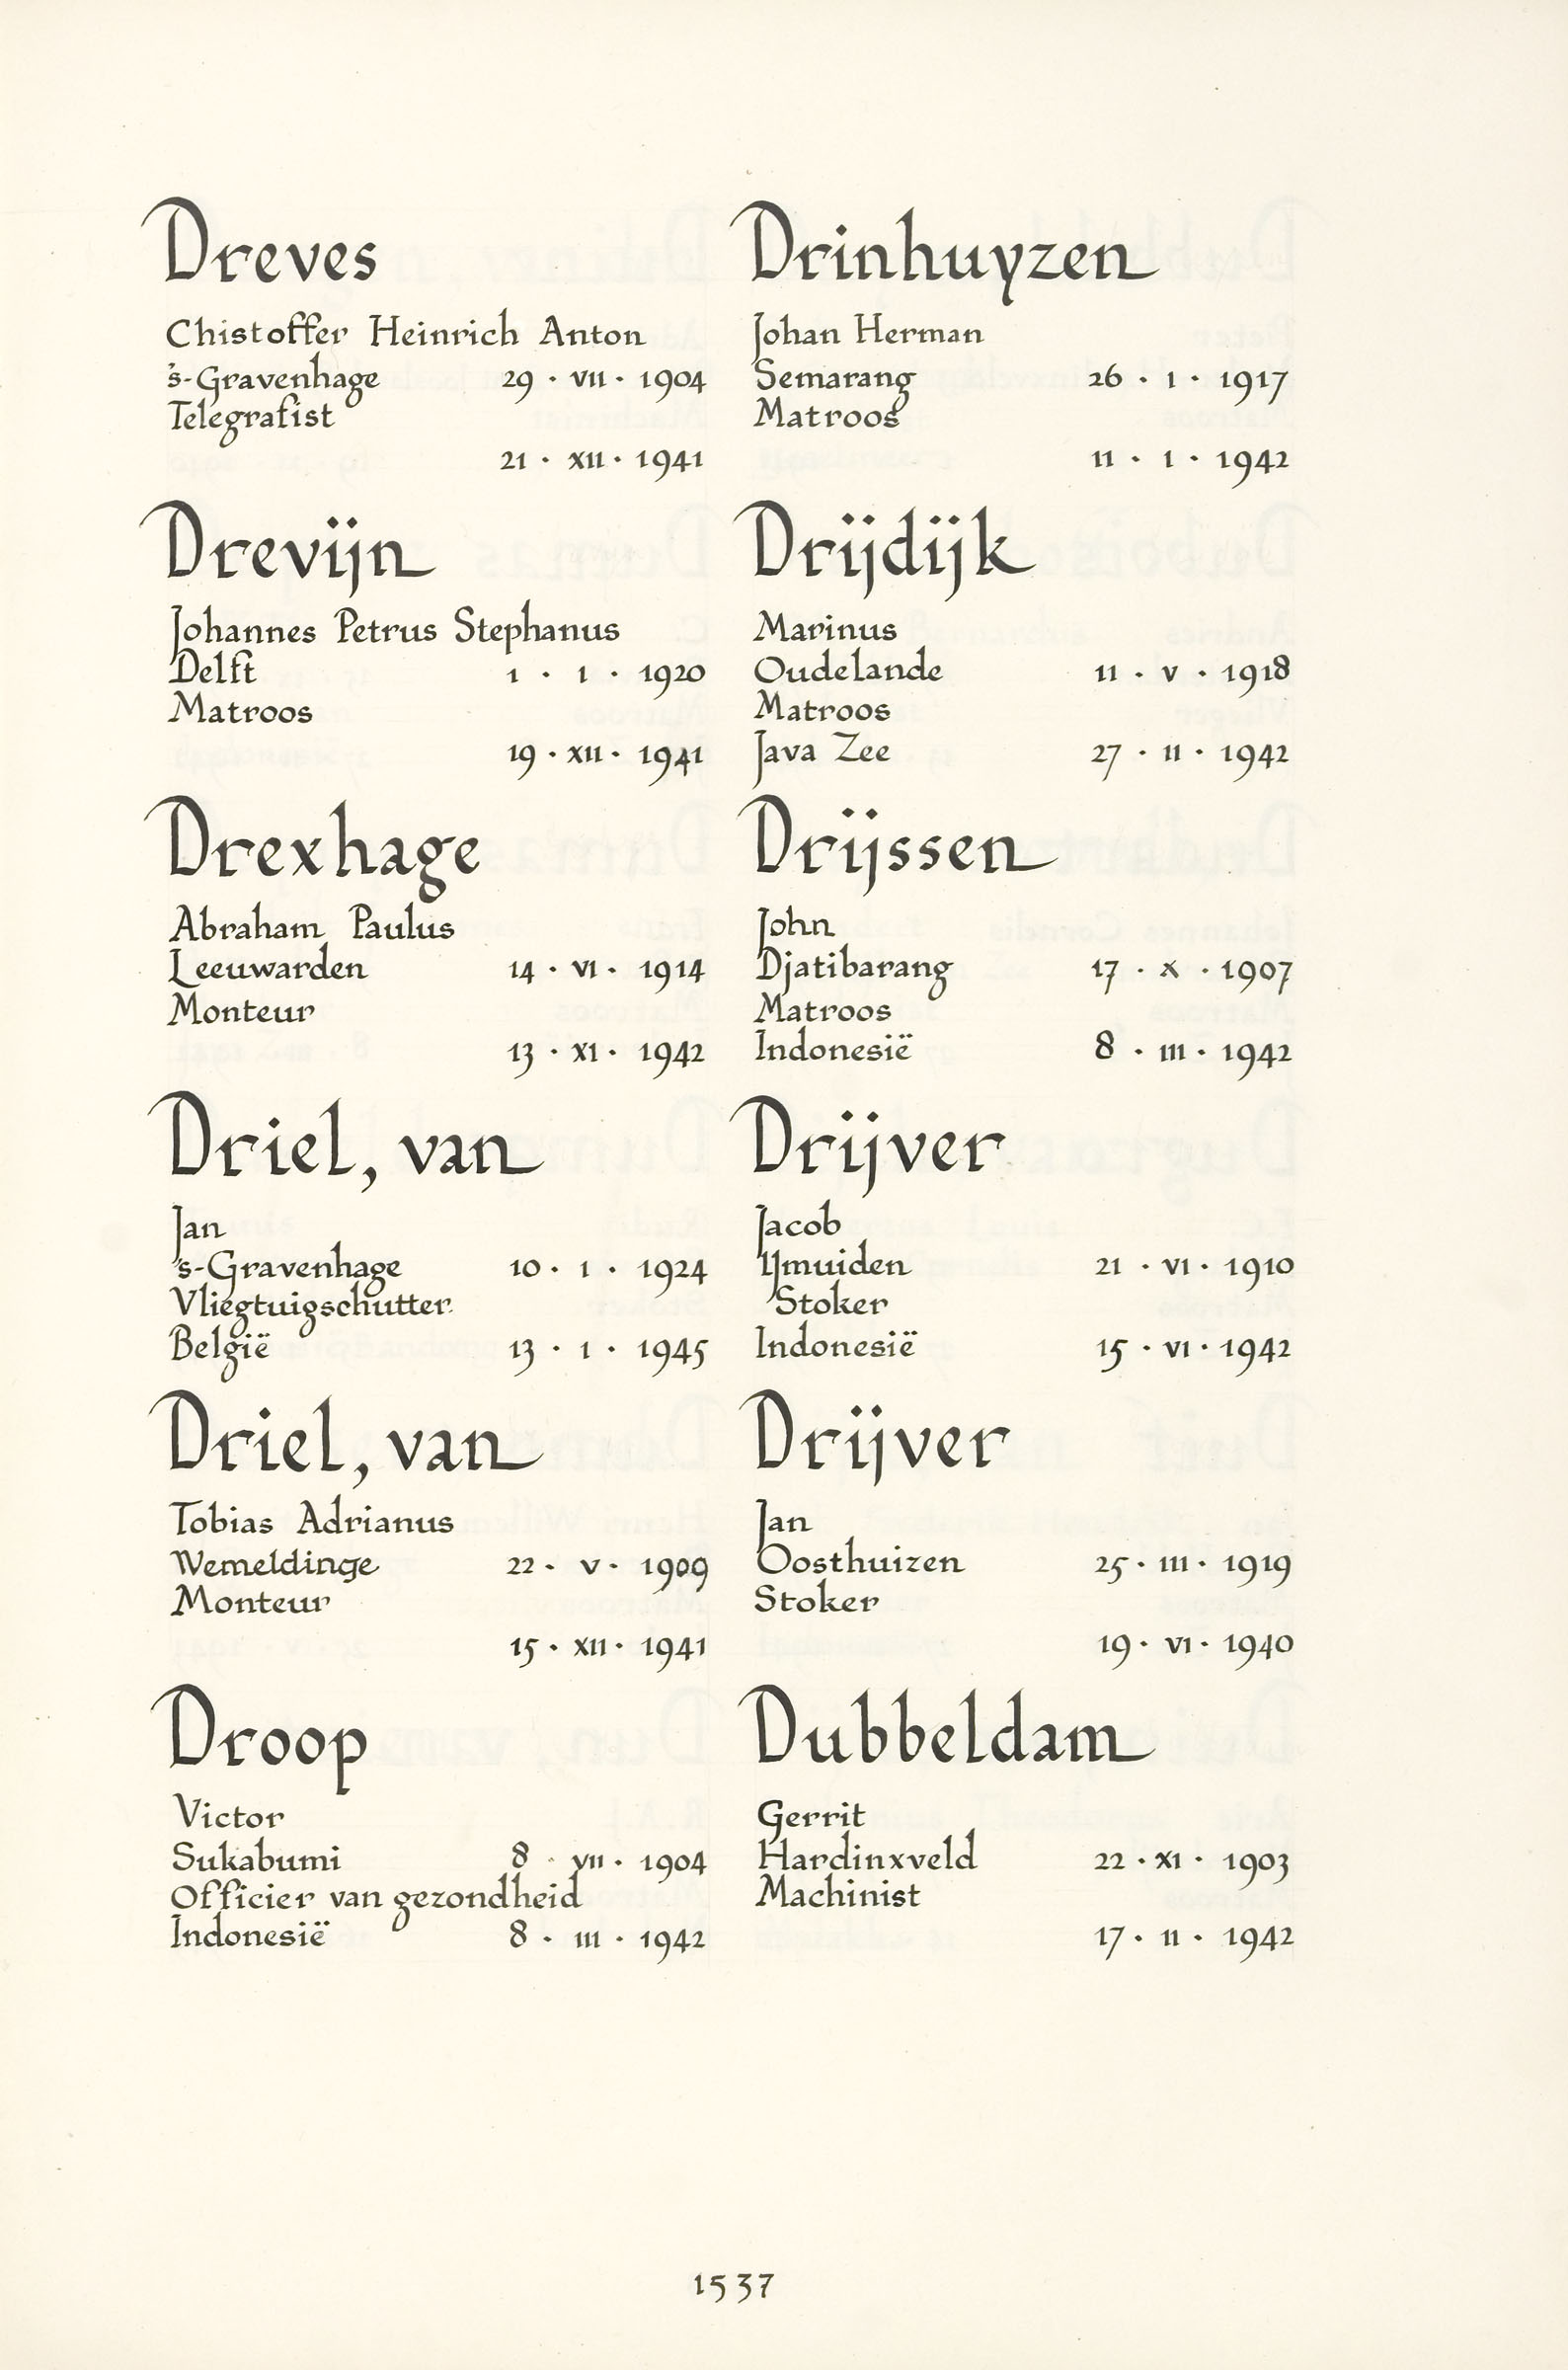 Dreves
Chistoffer Heinrich Anton
's-Gravenhage 29 · VII · 1904
Telegrafist
21 · XII · 1941
Drevijn
Johannes Petrus Stephanus
Delft 1 · 1 · 1920
Matroos
19 · XII · 1941
Drexhage
Abraham Paulus
Leeuwarden 14 · VI · 1914
Monteur
13 · XI · 1942
Driel, van
Jan
's-Gravenhage 10 · 1 · 1924
Vliegtuigschutter
België 13 · 1 · 1945
Driel, van
Tobias Adrianus
Wemeldinge 22 · V · 1909
Monteur
15 · XII · 1941
Droop
Victor
Sukabumi 8 · VII · 1904
Officier van gezondheid
Indonesië 8 · III · 1942
Drinhuyzen
Johan Herman
Semarang 26 · 1 · 1917
Matroos
11 · 1 · 1942
Drijdijk
Marinus
Oudelande 11 · V · 1918
Matroos
Java Zee 27 · II · 1942
Drijssen
John
Djatibarang 17 · X · 1907
Matroos
Indonesië 8 · III · 1942
Drijver
Jacob
IJmuiden 21 · VI · 1910
Stoker
Indonesië 15 · VI · 1942
Drijver
Jan
Oosthuizen 25 · III · 1919
Stoker
19 · VI · 1940
Dubbeldam
Gerrit
Hardinxveld 22 · XI · 1903
Machinist
17 · II · 1942
1537